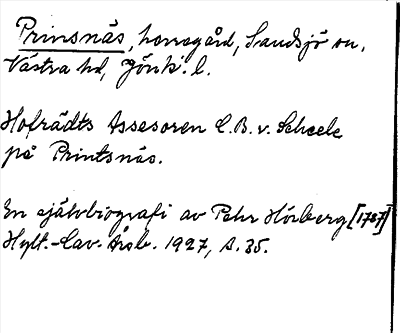 Prinsnäs, herregård, Sandsjö sn,
Västra hd, Jönk. l.
Hofrädts Assesoren C.B.v. Scheele
på Printsnäs.
En självbiografi av Pehr Hörberg [1787]
Hylt.-Cav. Årsb. 1927, s. 35.